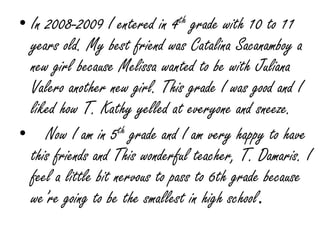 • In 2008-2009 I entered in 4th grade with 10 to 11
years old. My best friend was Catalina Sacanamboy a
new girl because Melissa wanted to be with Juliana
Valero another new girl. This grade I was good and I
liked how T. Kathy yelled at everyone and sneeze.
• Now I am in 5th grade and I am very happy to have
this friends and This wonderful teacher, T. Damaris. I
feel a little bit nervous to pass to 6th grade because
we're going to be the smallest in high school.